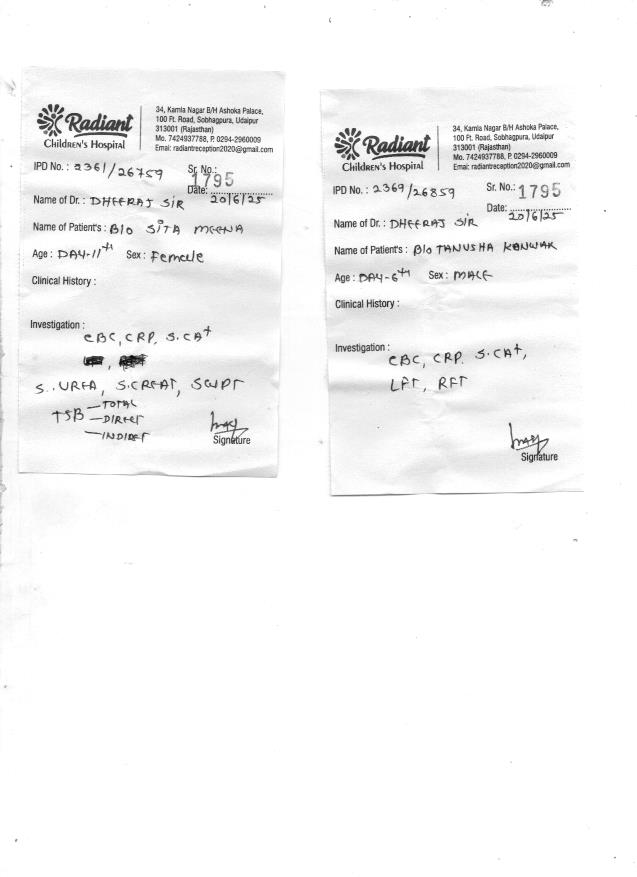 Radiant
Children's Hospital
34, Kamla Nagar B/H Ashoka Palace,
100 Ft. Road, Sobhagpura, Udaipur
313001 (Rajasthan)
Mo. 7424937788, P. 0294-2960009
Emai: radiantreception2020@gmail.com
IPD No. : 2361/26759 Sr. No.: 1795
Date: 20/6/25
Name of Dr. : DHEERAJ SIR
Name of Patient's : B/O SITA MEENA
Age : DAY-11th Sex : Female
Clinical History :
Investigation :
CBC, CRP, S.CA+
S. UREA, S.CREAT, SGPT
TSB — TOTAL
— DIRECT
— INDIRET
Signature
Radiant
Children's Hospital
34, Kamla Nagar B/H Ashoka Palace,
100 Ft. Road, Sobhagpura, Udaipur
313001 (Rajasthan)
Mo. 7424937788, P. 0294-2960009
Emai: radiantreception2020@gmail.com
IPD No. : 2369/26859 Sr. No.: 1795
Date: 20/6/25
Name of Dr. : DHEERAJ SIR
Name of Patient's : B/O TANUSHA KANWAR
Age : DAY-6th Sex : MALE
Clinical History :
Investigation :
CBC, CRP, S.CA+,
LFT, RFT
Signature